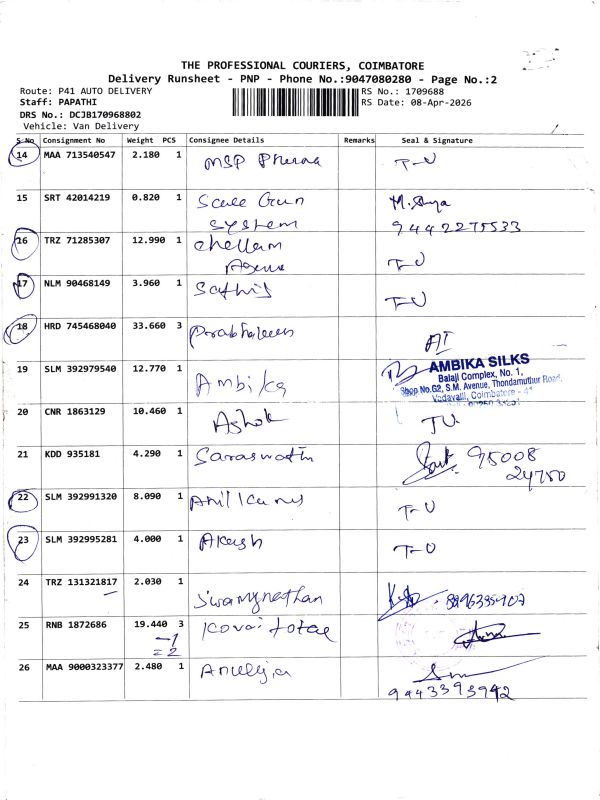 THE PROFESSIONAL COURIERS, COIMBATORE
Delivery Runsheet - PNP - Phone No.:9047080280 - Page No.:2
Route: P41 AUTO DELIVERY RS No.: 1709688
Staff: PAPATHI RS Date: 08-Apr-2026
DRS No.: DCJB170968802
Vehicle: Van Delivery
S No Consignment No Weight PCS Consignee Details Remarks Seal & Signature
14 MAA 713540547 2.180 1 MSP Pharma T-U
15 SRT 42014219 0.820 1 System
9442275533
16 TRZ 71285307 12.990 1 Chellam
T-U
17 NLM 90468149 3.960 1 Sathis T-U
18 HRD 745468040 33.660 3 AI
19 SLM 392979540 12.770 1 Ambika
AMBIKA SILKS
Balaji Complex, No. 1,
Shop No.G2, S.M. Avenue, Thondamuthur Road,
Vadavalli, Coimbatore
20 CNR 1863129 10.460 1 Ashok TU
21 KDD 935181 4.290 1 Saraswathi 95008
24750
22 SLM 392991320 8.090 1 T-U
23 SLM 392995281 4.000 1 Akash T-U
24 TRZ 131321817 2.030 1 Swamynathan
25 RNB 1872686 19.440 3 Kovai total
-1
=2
26 MAA 9000323377 2.480 1
9443393942